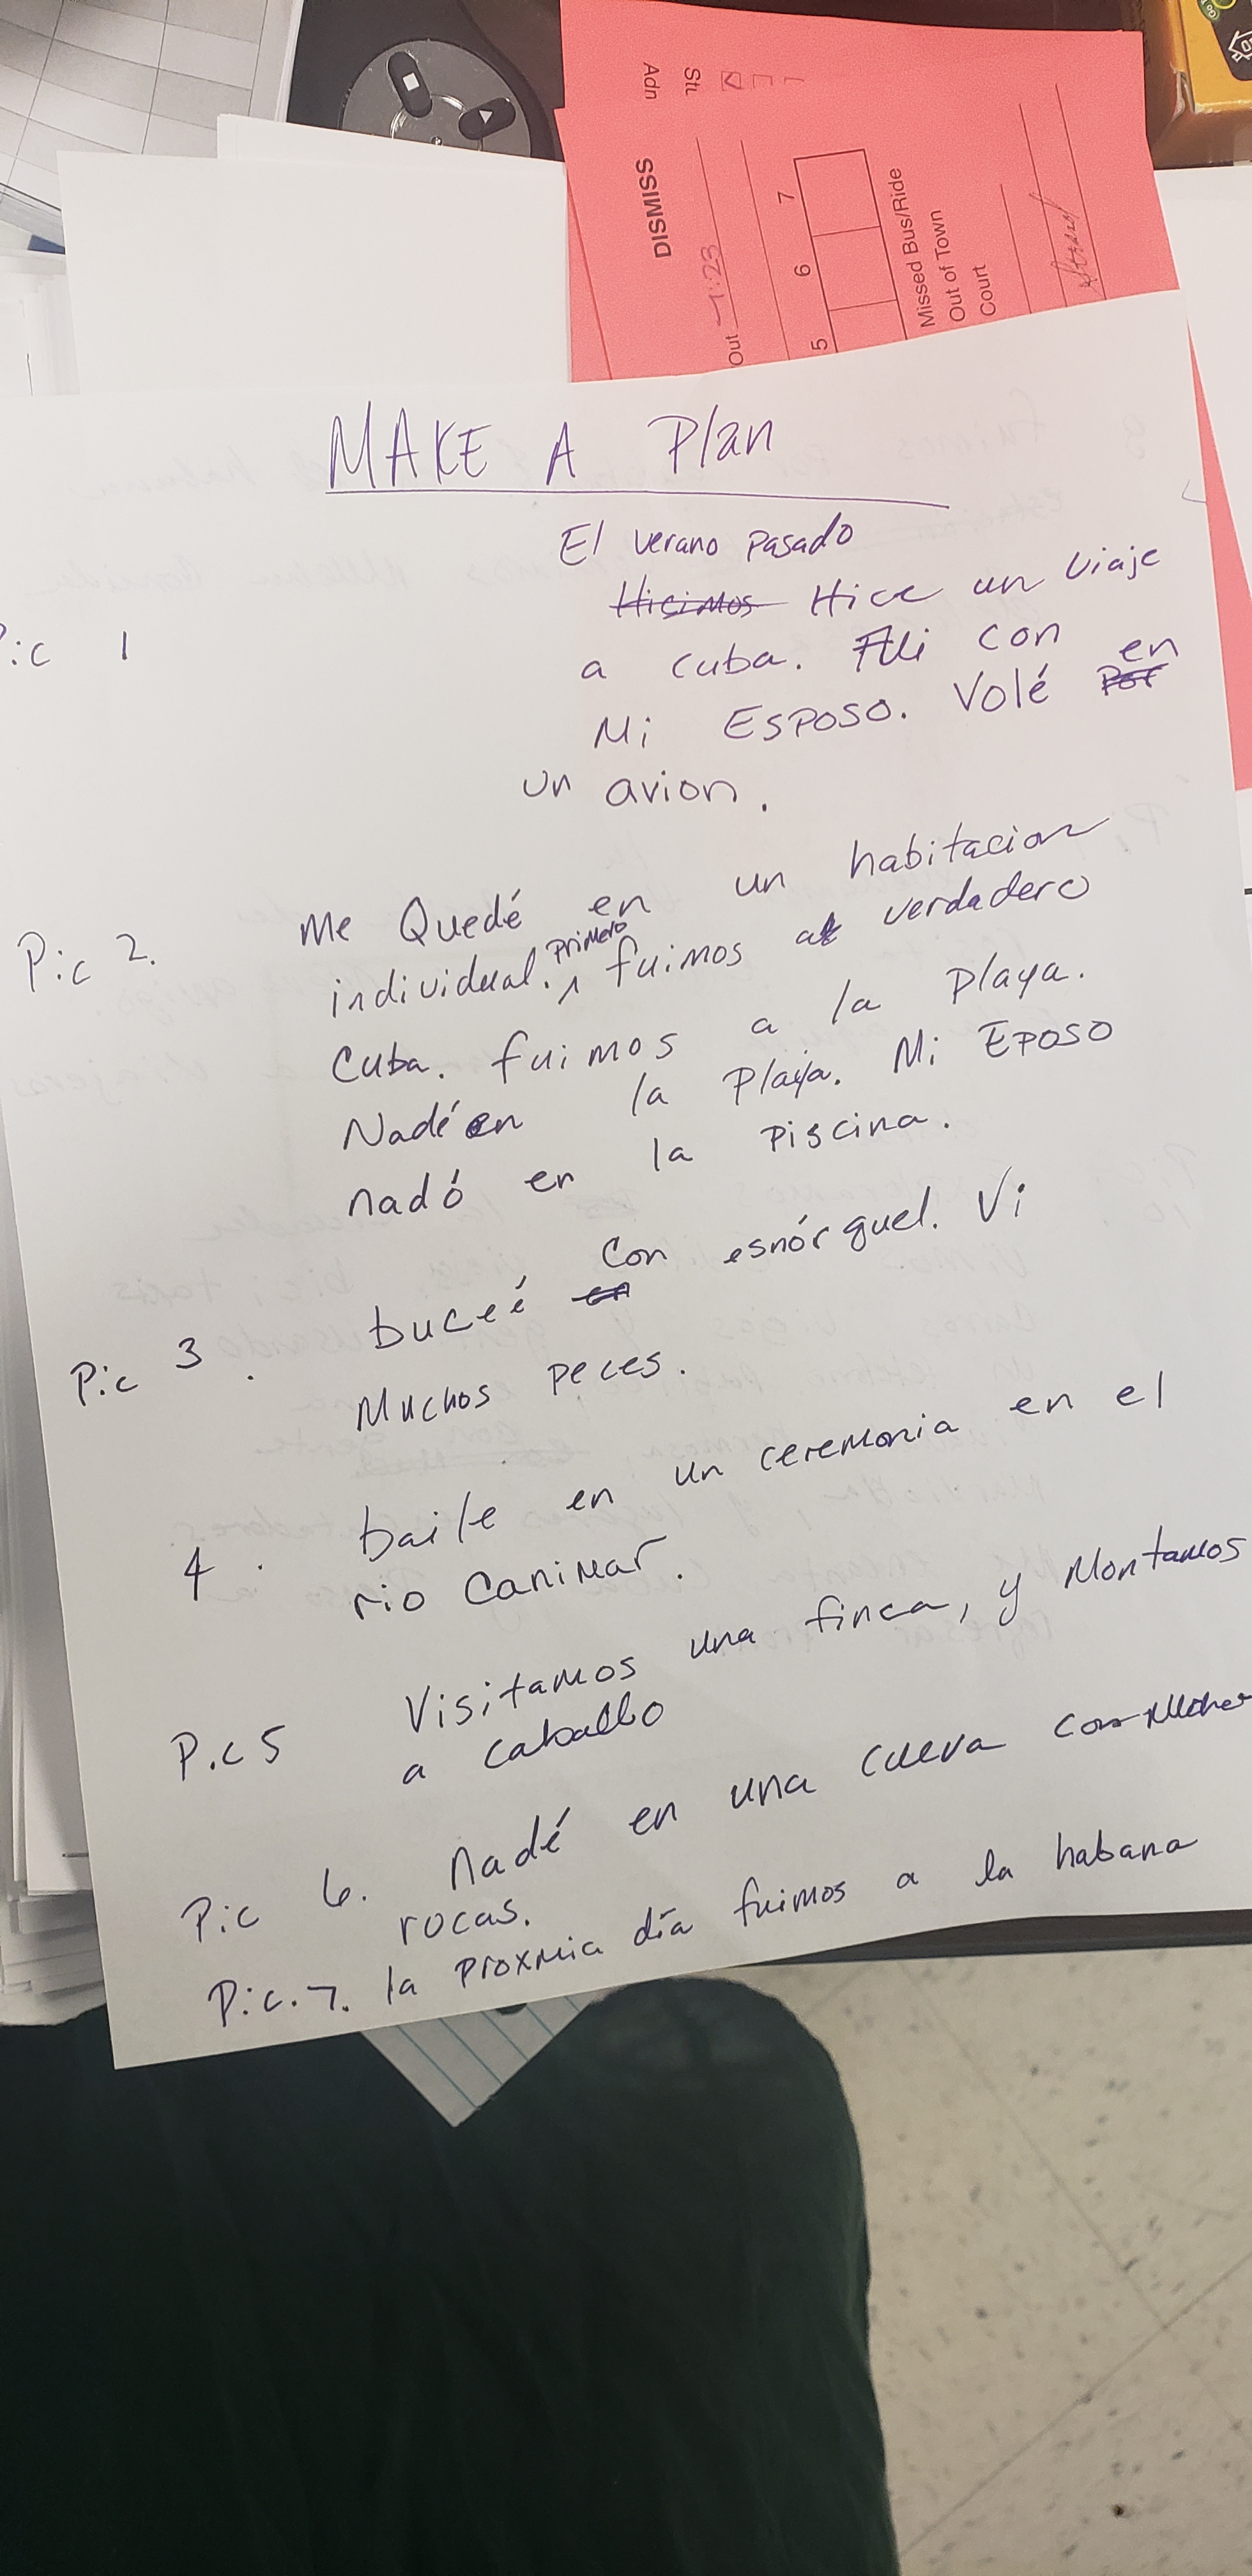 Adn
Stu
DISMISS
Out 1:23
5 6 7
Missed Bus/Ride
Out of Town
Court
MAKE A Plan
El verano pasado
Pic 1 Hicimos Hice un viaje
a cuba. Fui con
Mi ESPOSO. Volé por en
un avion.
Pic 2. Me Quedé en un habitacion
individual. primero fuimos al verdadero
Cuba. fuimos a la playa.
Nadé en la Playa. Mi EPOSO
nadó en la piscina.
Pic 3. buceé en con esnórquel. Vi
Muchos peces.
4. baile en un ceremonia en el
rio Canimar.
Pic 5 Visitamos una finca, y Montamos
a caballo
Pic 6. Nadé en una cueva con
rocas.
Pic. 7. la proxmia día fuimos a la habana